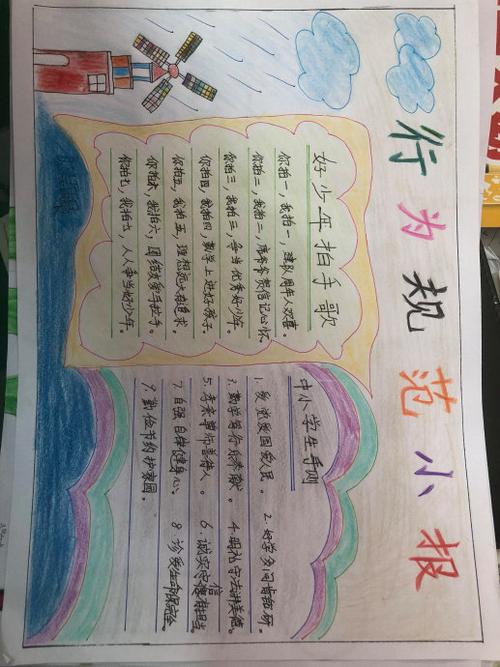 行为规范小报
好少年拍手歌
你拍一,我拍一,建队周年人欢喜。
你拍二,我拍二,席爷爷贺信记心怀。
你拍三,我拍三,争当优秀好少年。
你拍四,我拍四,勤学上进好孩子。
你拍五,我拍五,理想远大有追求。
你拍六,我拍六,团结友爱手拉手。
你拍七,我拍七,人人争当好少年。
中小学生手则
1. 爱党爱国爱人民。 2. 好学多问肯钻研。
3. 勤学笃行乐奉献。 4. 明礼守法讲美德。
5. 孝亲尊师善待人。 6. 诚实守信有担当。
7. 自强自律健身心。 8 珍爱生命保安全。
9. 勤俭节约护家园。